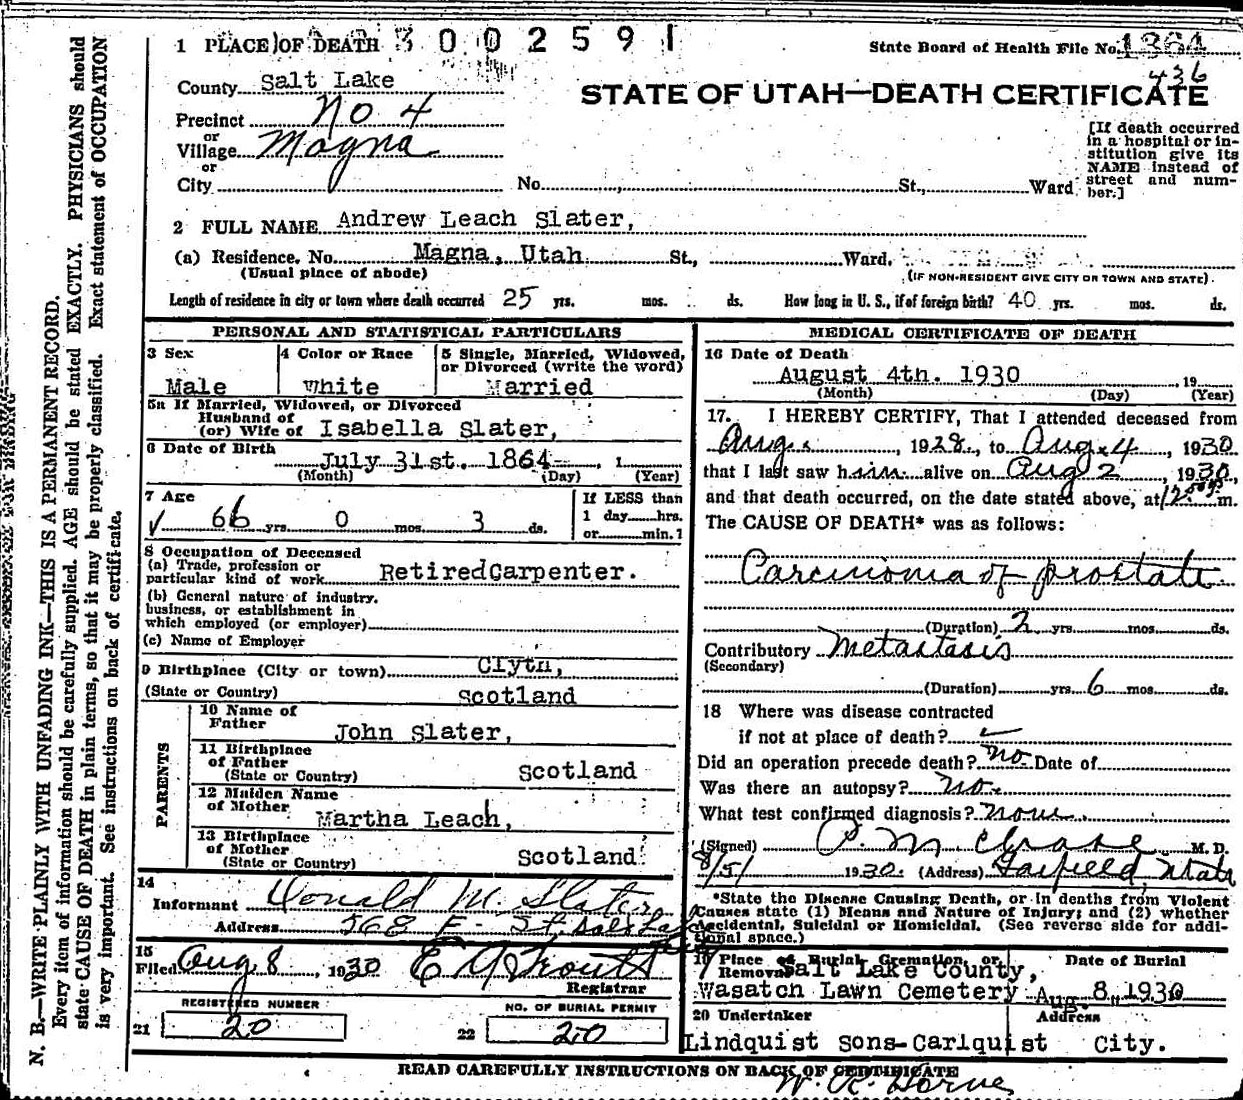 1 PLACE OF DEATH 3 0 0 2 5 9 1
State Board of Health File No. 1364
436
County Salt Lake
STATE OF UTAH—DEATH CERTIFICATE
Precinct No 4
or
Village Magna
or
City No. St., Ward
[If death occurred
in a hospital or in-
stitution give its
NAME instead of
street and num-
ber.]
2 FULL NAME Andrew Leach Slater,
(a) Residence. No. Magna, Utah St., Ward.
(Usual place of abode) (IF NON-RESIDENT GIVE CITY OR TOWN AND STATE)
Length of residence in city or town where death occurred 25 yrs. mos. ds. How long in U. S., if of foreign birth? 40 yrs. mos. ds.
PERSONAL AND STATISTICAL PARTICULARS
3 Sex
Male
4 Color or Race
White
5 Single, Married, Widowed,
or Divorced (write the word)
Married
5a If Married, Widowed, or Divorced
Husband of
(or) Wife of Isabella Slater,
6 Date of Birth
July 31st. 1864 , 1
(Month) (Day) (Year)
7 Age
66 yrs. 0 mos. 3 ds.
If LESS than
1 day hrs.
or min. ?
8 Occupation of Deceased
(a) Trade, profession or
particular kind of work RetiredCarpenter.
(b) General nature of industry.
business, or establishment in
which employed (or employer)
(c) Name of Employer
9 Birthplace (City or town) Clyth,
(State or Country) Scotland
PARENTS
10 Name of
Father John Slater,
11 Birthplace
of Father
(State or Country) Scotland
12 Maiden Name
of Mother Martha Leach,
13 Birthplace
of Mother
(State or Country) Scotland
14
Informant Donald M. Slater
Address 568 E - St. Salt Lake
15
Filed Aug 8, 1930
Registrar
REGISTERED NUMBER
21 20
NO. OF BURIAL PERMIT
22 20
MEDICAL CERTIFICATE OF DEATH
16 Date of Death
August 4th. 1930 , 19
(Month) (Day) (Year)
17. I HEREBY CERTIFY, That I attended deceased from
Aug. , 1928, to Aug. 4, 1930
that I last saw him alive on Aug 2, 1930,
and that death occurred, on the date stated above, at m.
The CAUSE OF DEATH* was as follows:
Carcinoma of prostate
(Duration) 2 yrs. mos. ds.
Contributory Metastasis
(Secondary)
(Duration) yrs. 6 mos. ds.
18 Where was disease contracted
if not at place of death?
Did an operation precede death? no Date of
Was there an autopsy? no.
What test confirmed diagnosis? none
(Signed) M. D.
8/5/ 1930. (Address) Garfield, Utah
*State the Disease Causing Death, or in deaths from Violent
Causes state (1) Means and Nature of Injury; and (2) whether
Accidental, Suicidal or Homicidal. (See reverse side for addi-
tional space.)
19 Place of Burial Cremation, or Removal Date of Burial
Salt Lake County,
Wasatch Lawn Cemetery Aug. 8, 1930
20 Undertaker Address
Lindquist Sons-Carlquist City.
READ CAREFULLY INSTRUCTIONS ON BACK OF CERTIFICATE
N. B.—WRITE PLAINLY WITH UNFADING INK—THIS IS A PERMANENT RECORD.
Every item of information should be carefully supplied. AGE should be stated EXACTLY. PHYSICIANS should
state CAUSE OF DEATH in plain terms, so that it may be properly classified. Exact statement of OCCUPATION
is very important. See instructions on back of certificate.